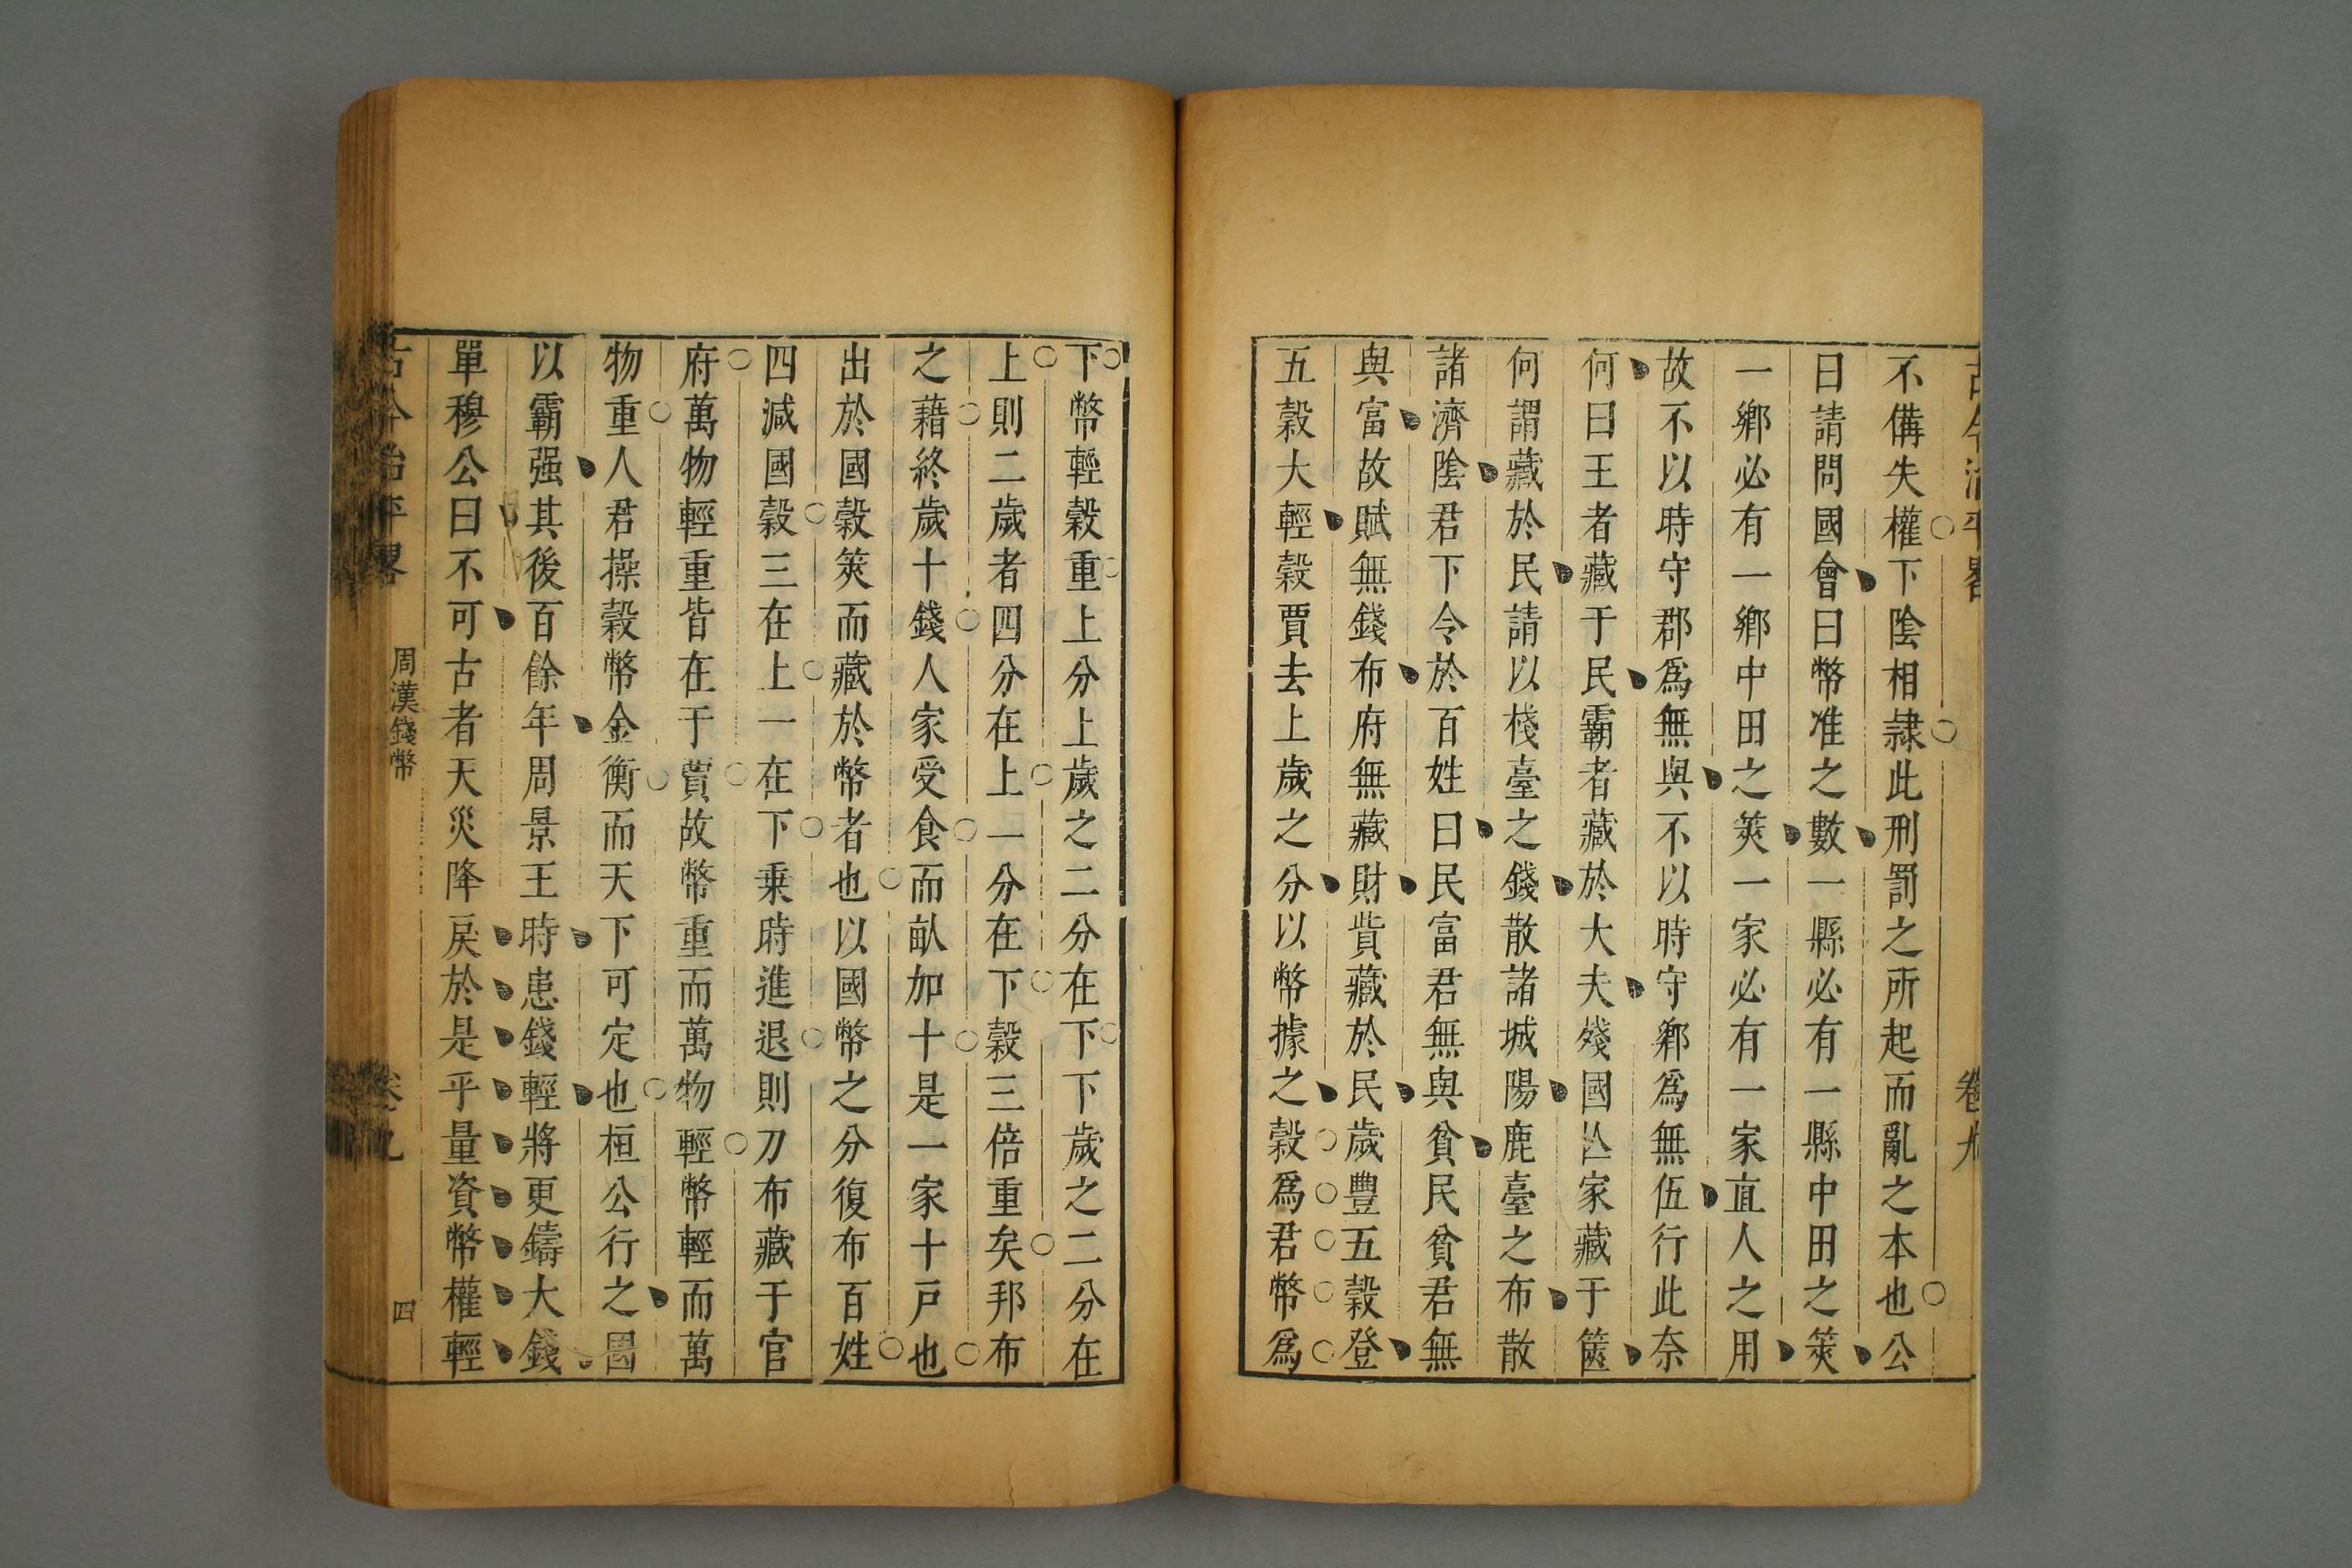 古今治平畧
卷九
不備失權下陰相隷此刑罰之所起而亂之本也公
曰請問國會曰幣准之數一縣必有一縣中田之筴
一鄉必有一鄉中田之筴一家必有一家直人之用
故不以時守郡爲無與不以時守鄉爲無伍行此奈
何曰王者藏于民霸者藏於大夫殘國亾家藏于篋
何謂藏於民請以棧臺之錢散諸城陽鹿臺之布散
諸濟陰君下令於百姓曰民富君無與貧民貧君無
與富故賦無錢布府無藏財貲藏於民歲豐五穀登
五穀大輕穀賈去上歲之分以幣據之穀爲君幣爲
下幣輕穀重上分上歲之二分在下下歲之二分在
上則二歲者四分在上一分在下穀三倍重矣邦布
之藉終歲十錢人家受食而畝加十是一家十戸也
出於國穀筴而藏於幣者也以國幣之分復布百姓
四減國穀三在上一在下乗時進退則刀布藏于官
府萬物輕重皆在于賈故幣重而萬物輕幣輕而萬
物重人君操穀幣金衡而天下可定也桓公行之國
以霸强其後百餘年周景王時患錢輕將更鑄大錢
單穆公曰不可古者天災降戾於是乎量資幣權輕
古今治平畧
周漢錢幣
卷九
四